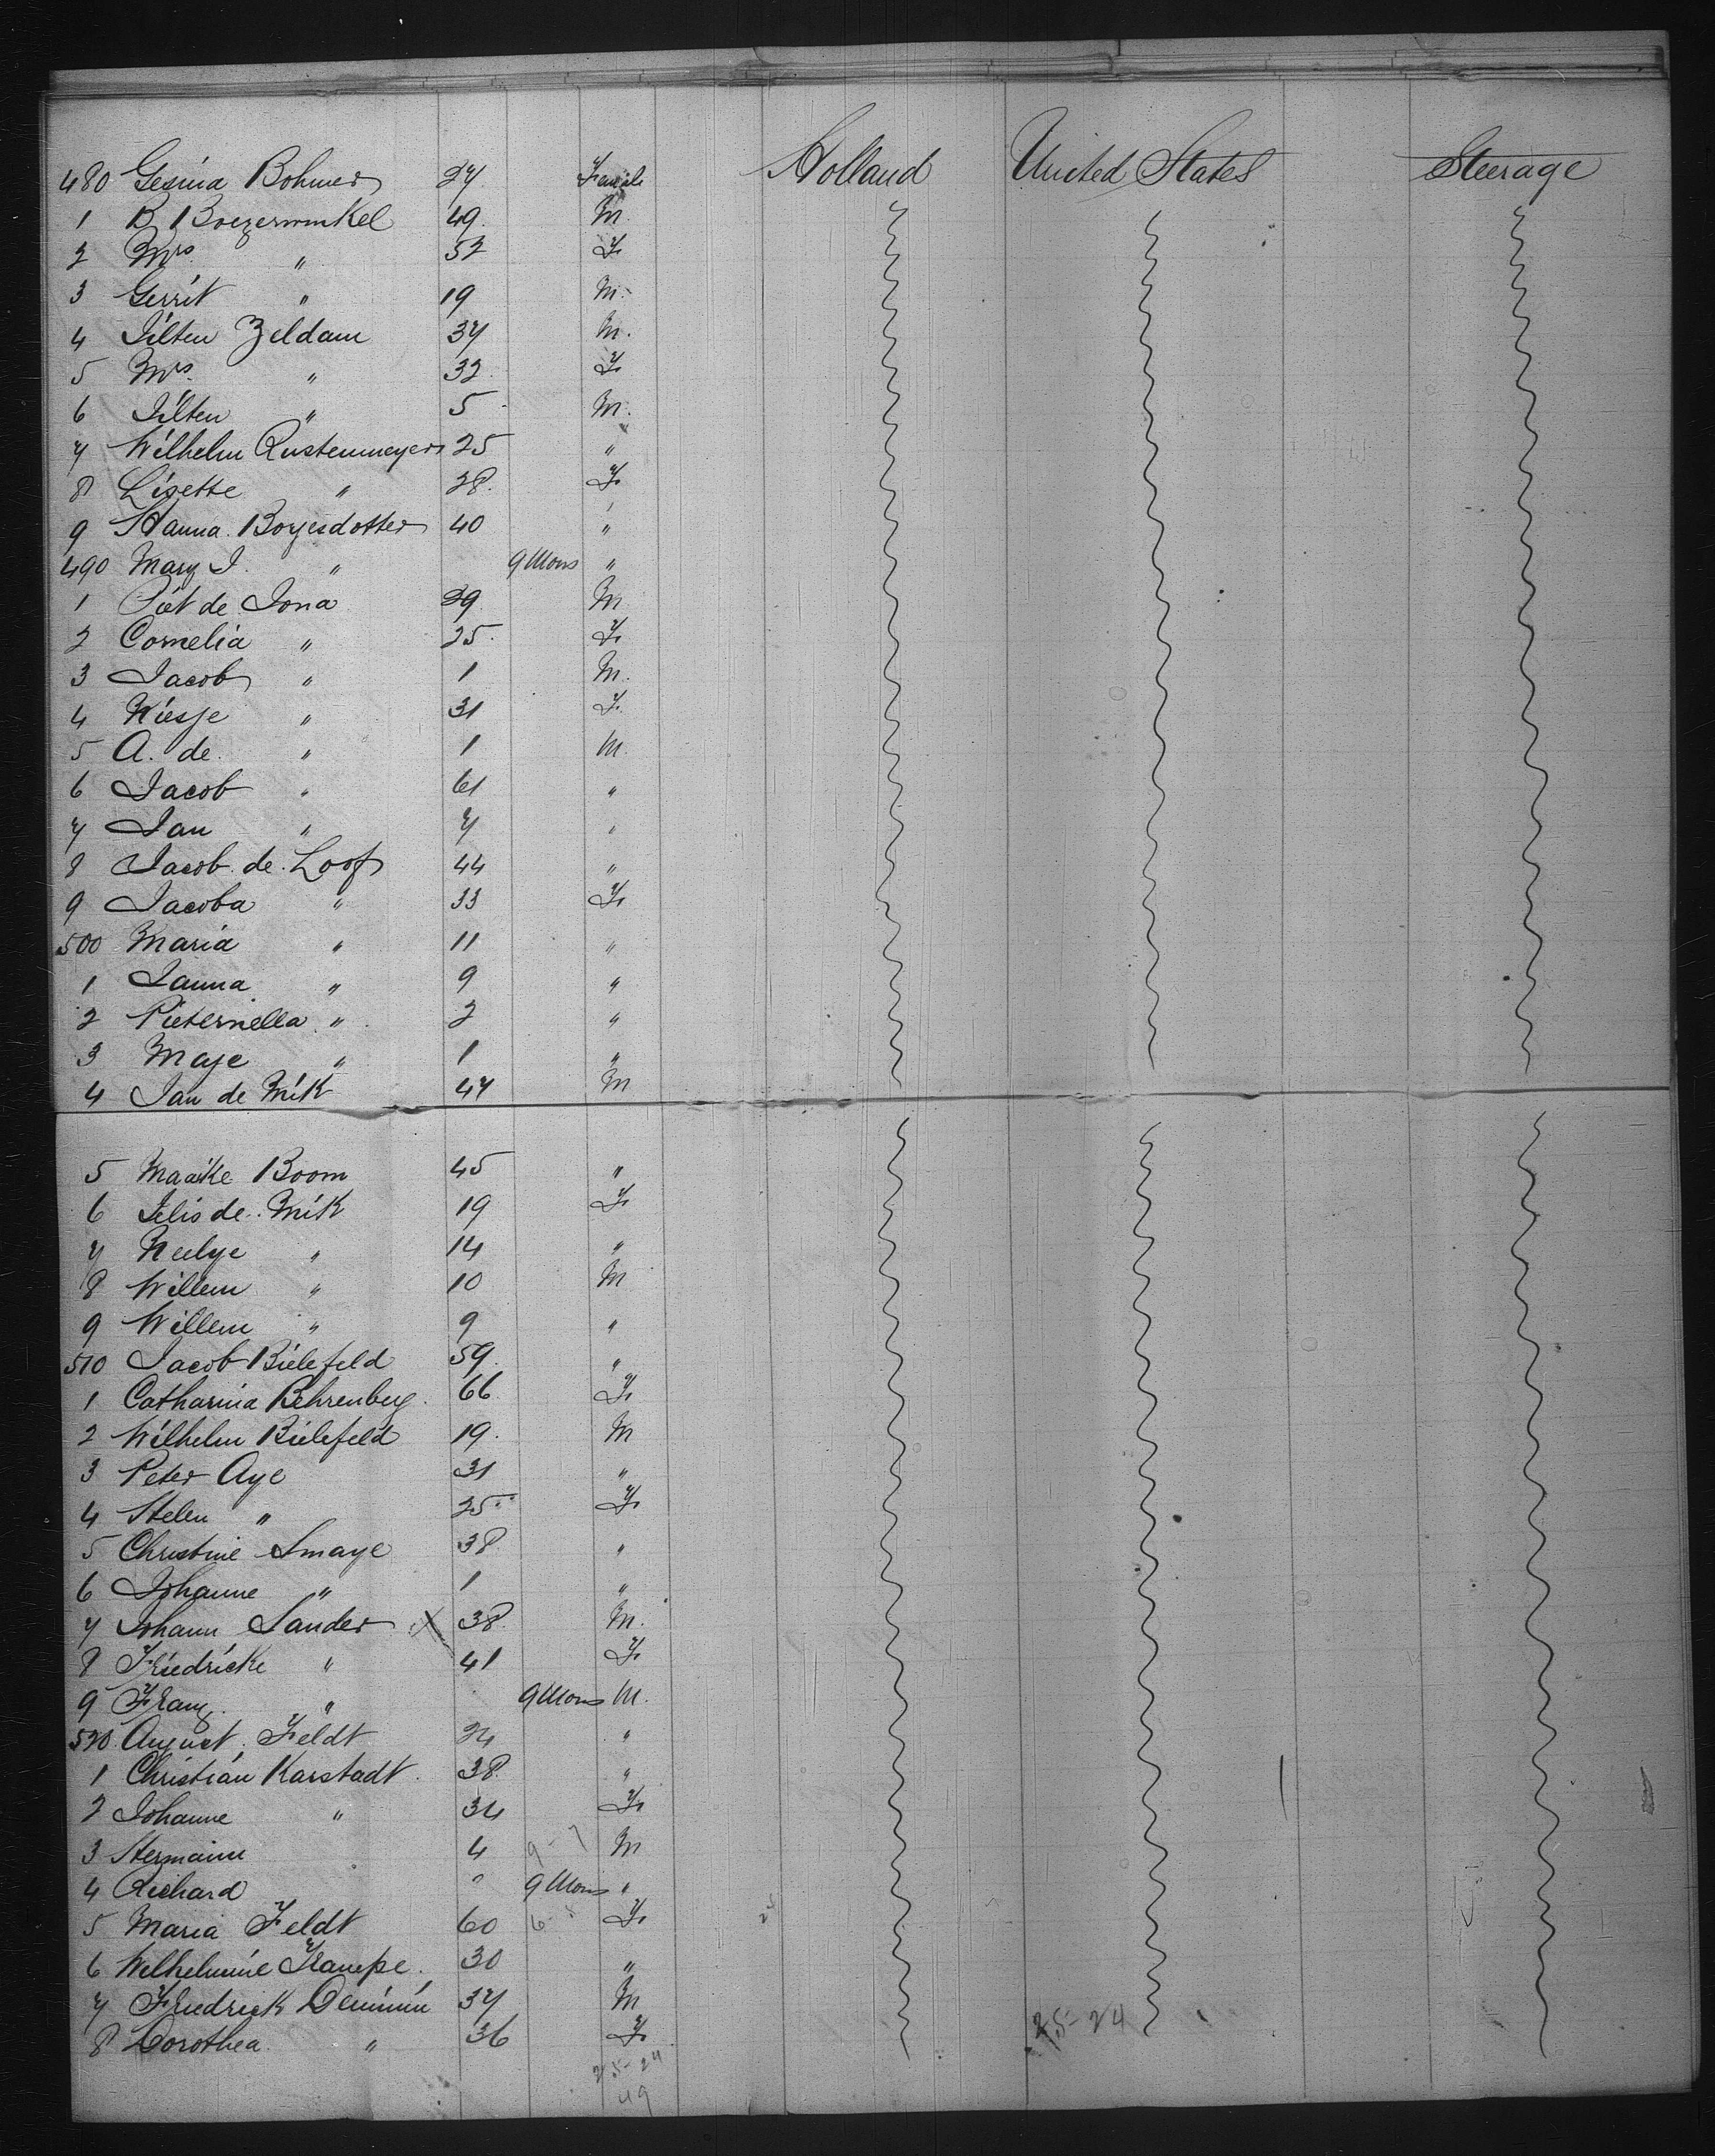 480 Gesina Bohmer 27 Female Holland United States Steerage
1 B Boezerwinkel 49 M.
2 Mrs. " 52 F.
3 Gerrit " 19 M.
4 Zeldam 37 M.
5 Mrs. " 32 F.
6 " 5 M.
7 Wilhelm Rustenmeyer 25 "
8 Lisette " 28 F.
9 Hanna Boyesdotter 40 "
490 Mary J. " 9 Mons "
1 Piet de Jona 29 M
2 Cornelia " 25 F.
3 Jacob " 1 M.
4 " 31 F.
5 A. de " 1 M
6 Jacob " 61 "
7 Jan " 7 "
8 Jacob de Loof 44 "
9 Jacoba " 33 F.
500 Maria " 11 "
1 Janna " 9 "
2 Pieternella " 2 "
3 Maje " 1 "
4 Jan de Mik 47 M
5 Maaike Boom 45 "
6 Jelis de Mik 19 F.
7 Neelye " 14 "
8 Willem " 10 M
9 Willem " 9 "
510 Jacob Bielefeld 59 "
1 Catharina Behrenberg 66 F.
2 Wilhelm Bielefeld 19 M
3 Peter Aye 31 "
4 Helen " 25 F.
5 Christine Smaye 38 "
6 Johanne " 1 "
7 Johann Sander X 38 M.
8 Friedricke " 41 F.
9 Franz " 9 Mons M.
520 August Feldt 24 "
1 Christian Karstadt 38 "
2 Johanne " 34 F.
3 Hermann 4 M
4 Richard " 9 Mons "
5 Maria Feldt 60 F.
6 Wilhelmine 30 "
7 Friedrick Demmin 37 M
8 Dorothea " 36 F.
25-24
25-24
49